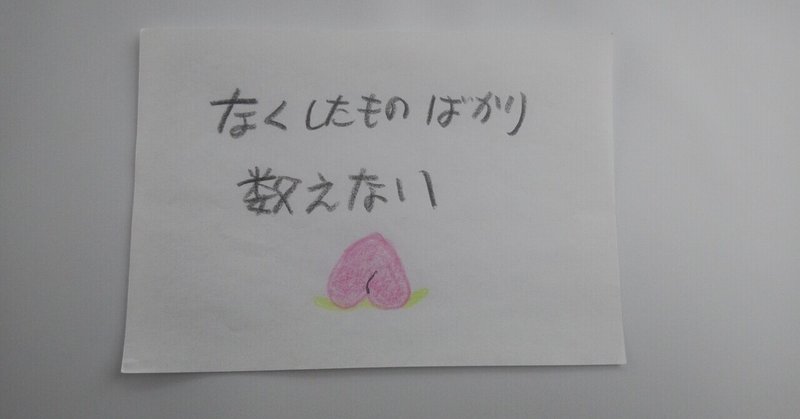 なくしたものばかり
数えない